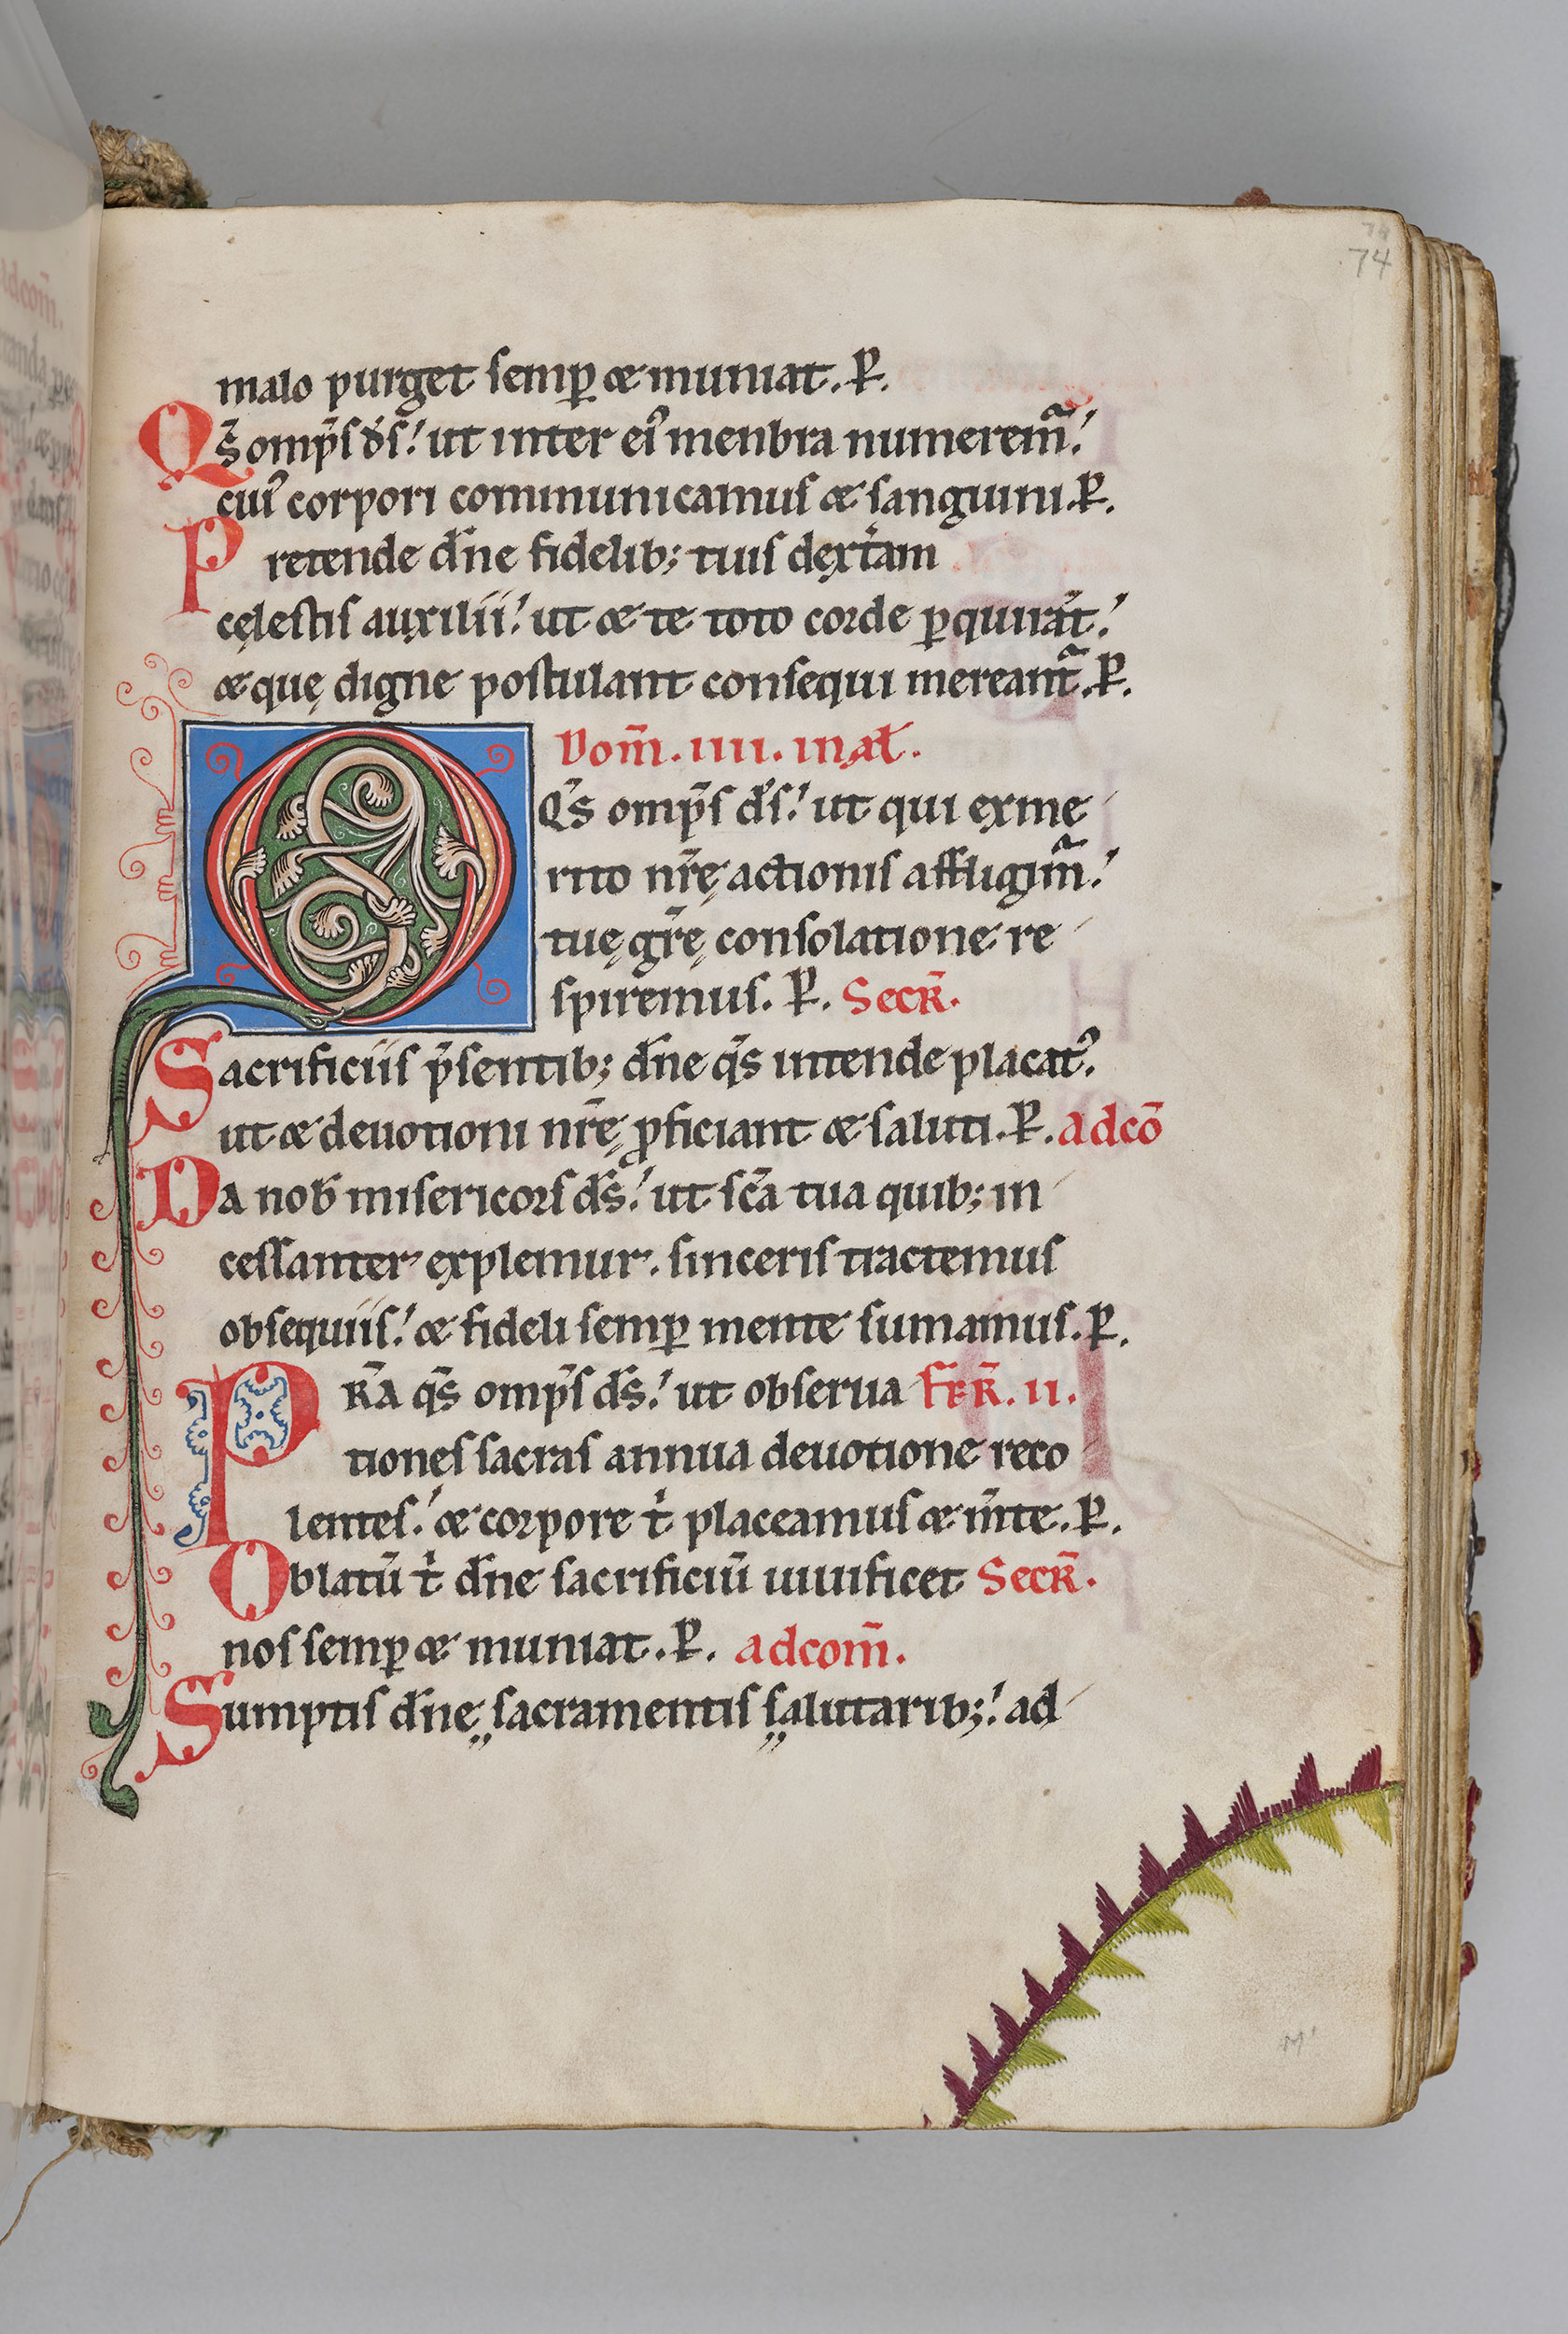 74
malo purget semꝑ & muniat. P̲.
Qs̄ omp̄s d̄s! ut inter ei᾽ menbra numerem̃!
cui᾽ corpori communicamus & sanguini. P̲.
Pretende dn̄e fidelib; tuis dextͥam
cęlestis auxilii! ut & te toto corde ꝑquirāt!
& quę digne postulant consequi mereant̃. P̲.
Dom̄. IIII. in xł.
O Qs̄ omp̄s d̄s! ut qui ex me
rito nr̄ę actionis affligim̃!
tuę gr̄ę consolatione re
spiremus. P̲. Secr̄.
Sacrificiis p̄sentib; dn̄e qs̄ intende placat᾽.
ut & deuotioni nr̄ę ꝓficiant & saluti. P̲. adcō
Da nob̄ misericors d̄s! ut sc̄a tua quib; in
cessanter explemur. sinceris tractemus
obsequiis! & fideli semꝑ mente sumamus. P̲.
Pr̄a qs̄ omp̄s d̄s! ut obserua Fer̄. II.
tiones sacras annua deuotione reco
lentes! & corpore tͥ placeamus & m̄te. P̲.
Oblatū tͥ dn̄e sacrificiū uiuificet Secr̄.
nos semꝑ & muniat. P̲. adcom̄.
Sumptis dn̄e sacramentis salutarib;! ad